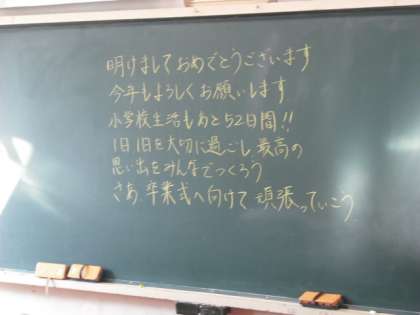 明けましておめでとうございます
今年もよろしくお願いします
小学校生活もあと52日間!!
1日1日を大切に過ごし、最高の
思い出をみんなでつくろう
さあ、卒業式へ向けて頑張っていこう